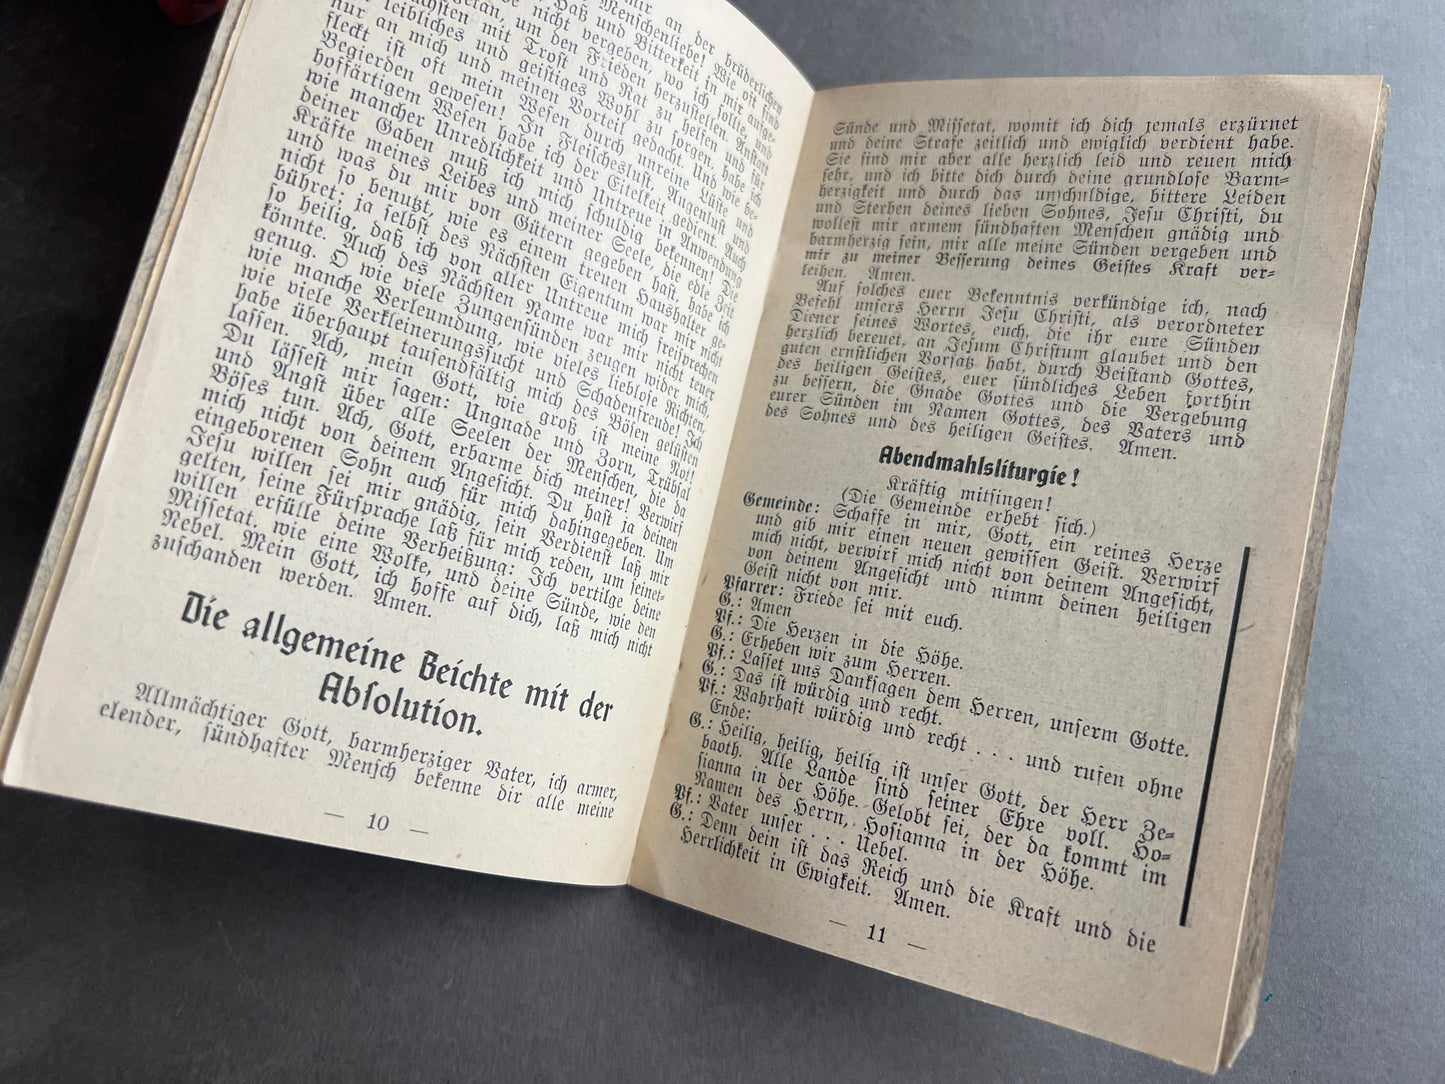 mir an der brüderlichen
Menschenliebe! Wie oft sind
Haß und Bitterkeit in mir aufge-
nicht vergeben, wo ich sollte, und
getan, um den Frieden herzustellen. Anstatt
Nächsten mit Trost und Rat zu helfen und für
leibliches und geistiges Wohl zu sorgen, habe ich
nur an mich und meinen Vorteil gedacht. Und wie be-
fleckt ist oft mein Wesen durch unreine Lüste und
Begierden gewesen! In Fleischeslust, Augenlust und
hoffärtigem Wesen habe ich der Eitelkeit gedient. Auch
wie mancher Unredlichkeit und Untreue in Anwendung
deiner Gaben muß ich mich schuldig bekennen! Die
Kräfte meines Leibes und meiner Seele, die edle Zeit
und was du mir von Gütern gegeben hast, habe ich
nicht so benutzt, wie es einem treuen Haushalter ge-
bühret; ja selbst des Nächsten Eigentum war mir nicht
so heilig, daß ich von aller Untreue mich freisprechen
könnte. Auch des Nächsten Name war mir nicht teuer
genug. O wie viele Zungensünden zeugen wider mich,
wie manche Verleumdung, wie vieles lieblose Richten,
wie viele Verkleinerungssucht und Schadenfreude! Ich
habe überhaupt tausendfältig mich des Bösen gelüsten
lassen. Ach, mein Gott, wie groß ist meine Not!
Du lässest mir sagen: Ungnade und Zorn, Trübsal
und Angst über alle Seelen der Menschen, die da
Böses tun. Ach, Gott, erbarme dich meiner! Verwirf
mich nicht von deinem Angesicht. Du hast ja deinen
eingeborenen Sohn auch für mich dahingegeben. Um
Jesu willen sei mir gnädig, sein Verdienst laß mir
gelten, seine Fürsprache laß für mich reden, um seinet-
willen erfülle deine Verheißung: Ich vertilge deine
Missetat, wie eine Wolke, und deine Sünde, wie den
Nebel. Mein Gott, ich hoffe auf dich, laß mich nicht
zuschanden werden. Amen.
Die allgemeine Beichte mit der
Absolution.
Allmächtiger Gott, barmherziger Vater, ich armer,
elender, sündhafter Mensch bekenne dir alle meine
— 10 —
Sünde und Missetat, womit ich dich jemals erzürnet
und deine Strafe zeitlich und ewiglich verdient habe.
Sie sind mir aber alle herzlich leid und reuen mich
sehr, und ich bitte dich durch deine grundlose Barm-
herzigkeit und durch das unschuldige, bittere Leiden
und Sterben deines lieben Sohnes, Jesu Christi, du
wollest mir armem sündhaften Menschen gnädig und
barmherzig sein, mir alle meine Sünden vergeben und
mir zu meiner Besserung deines Geistes Kraft ver-
leihen. Amen.
Auf solches euer Bekenntnis verkündige ich, nach
Befehl unsers Herrn Jesu Christi, als verordneter
Diener seines Wortes, euch, die ihr eure Sünden
herzlich bereuet, an Jesum Christum glaubet und den
guten ernstlichen Vorsatz habt, durch Beistand Gottes,
des heiligen Geistes, euer sündliches Leben forthin
zu bessern, die Gnade Gottes und die Vergebung
eurer Sünden im Namen Gottes, des Vaters und
des Sohnes und des heiligen Geistes. Amen.
Abendmahlsliturgie!
Kräftig mitsingen!
(Die Gemeinde erhebt sich.)
Gemeinde: Schaffe in mir, Gott, ein reines Herze
und gib mir einen neuen gewissen Geist. Verwirf
mich nicht, verwirf mich nicht von deinem Angesicht,
von deinem Angesicht und nimm deinen heiligen
Geist nicht von mir.
Pfarrer: Friede sei mit euch.
G.: Amen
Pf.: Die Herzen in die Höhe.
G.: Erheben wir zum Herren.
Pf.: Lasset uns Danksagen dem Herren, unserm Gotte.
G.: Das ist würdig und recht.
Pf.: Wahrhaft würdig und recht . . . und rufen ohne
Ende:
G.: Heilig, heilig, heilig ist unser Gott, der Herr Ze-
baoth. Alle Lande sind seiner Ehre voll. Ho-
sianna in der Höhe. Gelobt sei, der da kommt im
Namen des Herrn, Hosianna in der Höhe.
Pf.: Vater unser . . . Uebel.
G.: Denn dein ist das Reich und die Kraft und die
Herrlichkeit in Ewigkeit. Amen.
— 11 —